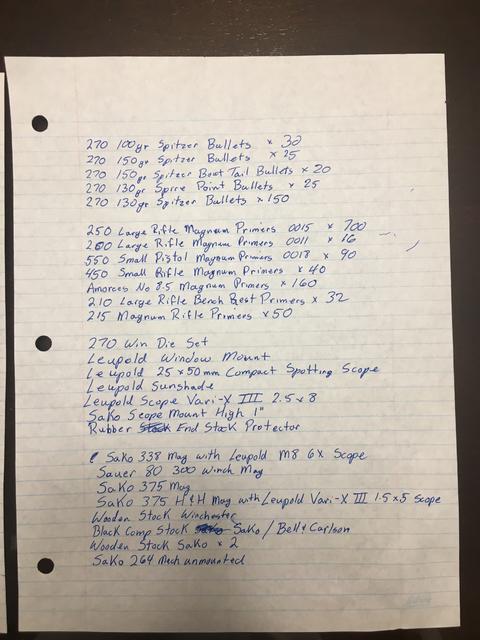 270 100gr Spitzer Bullets x 32
270 150gr Spitzer Bullets x 25
270 150gr Spitzer Boat Tail Bullets x 20
270 130gr Spire Point Bullets x 25
270 130gr Spitzer Bullets x 150
250 Large Rifle Magnum Primers 0015 x 700
200 Large Rifle Magnum Primers 0011 x 16
550 Small Pistol Magnum Primers 0018 x 90
450 Small Rifle Magnum Primers x 40
Amorces No 8.5 Magnum Primers x 160
210 Large Rifle Bench Rest Primers x 32
215 Magnum Rifle Primers x 50
270 Win Die Set
Leupold Window Mount
Leupold 25 x 50mm Compact Spotting Scope
Leupold Sunshade
Leupold Scope Vari-X III 2.5 x 8
Sako Scope Mount High 1"
Rubber End Stock Protector
Sako 338 Mag with Leupold M8 6X Scope
Sauer 80 300 Winch Mag
Sako 375 Mag
Sako 375 H&H Mag with Leupold Vari-X III 1.5 x 5 Scope
Wooden Stock Winchester
Black Comp Stock Sako / Bell & Carlson
Wooden Stock Sako x 2
Sako 264 Mach unmounted